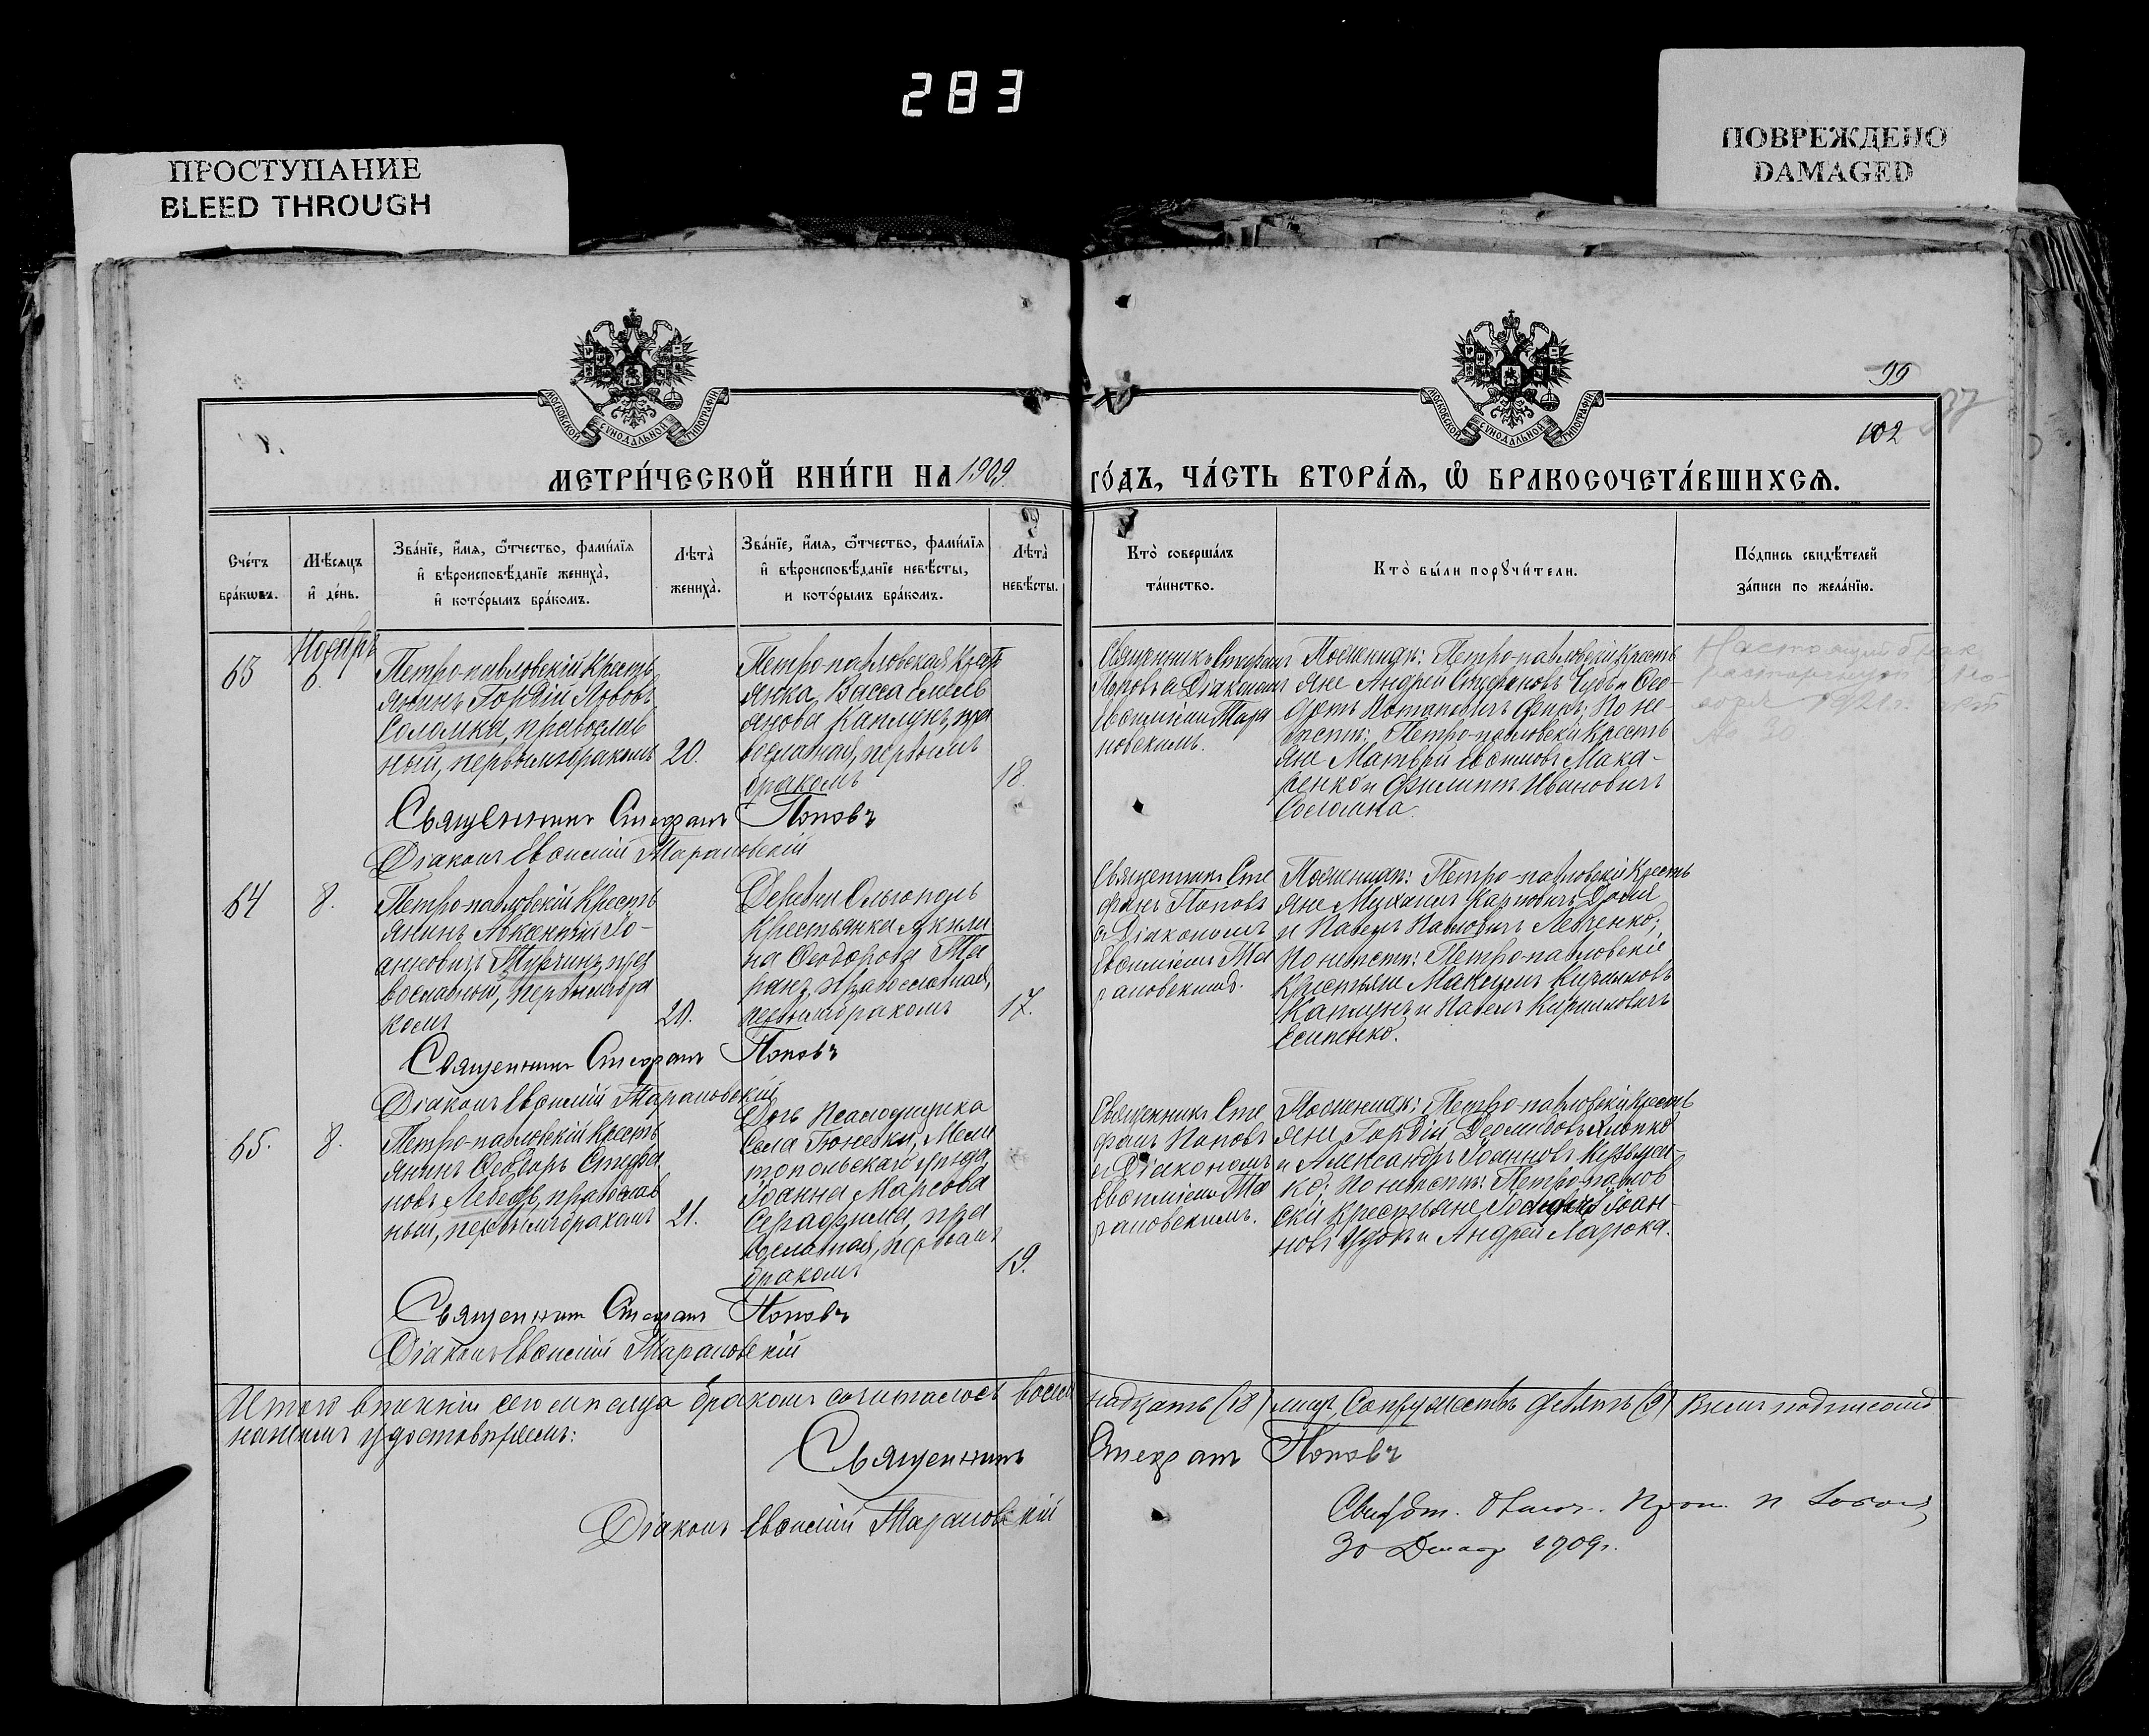 283
ПРОСТУПАНИЕ
BLEED THROUGH
ПОВРЕЖДЕНО
DAMAGED
МОСКОВСКОЙ СѴНОДАЛЬНОЙ ТИПОГРАФІИ
МОСКОВСКОЙ СѴНОДАЛЬНОЙ ТИПОГРАФІИ
99
102
МЕТРИ́ЧЕСКОЙ КНИ́ГИ НА 1909 ГО́ДЪ, ЧА́СТЬ ВТОРА́Ѧ, Ѽ БРАКОСОЧЕТА́ВШИХСѦ.
Сче́тъ
бра́кѡвъ.
Мѣ́сѧцъ
и҆ де́нь.
Зва́нїе, и҆́мѧ, ѻ҆́тчество, фами́лїѧ
и҆ вѣроисповѣ́данїе жениха̀,
и҆ кото́рымъ бра́комъ.
Лѣта̀
жениха̀.
Зва́нїе, и҆́мѧ, ѻ҆́тчество, фами́лїѧ
и҆ вѣроисповѣ́данїе невѣ́сты,
и кото́рымъ бра́комъ.
Лѣта̀
невѣ́сты.
Кто̀ соверша́лъ
та́инство.
Кто̀ бы́ли порꙋчи́тели.
По́дпись свидѣ́телей
за́писи по жела́нїю.
63
Ноябрь
6.
Петро-павловскій кресть
янинъ Гордій
Соломка, православ
ный, первымъ бракомъ
20.
Петро-павловская крест
янка Васса Емель
янова Каплунъ, пра
вославная, первымъ
бракомъ
18.
Священникъ Стефанъ
Поповъ и Діакономъ
Евѳиміемъ Тара
новскимъ.
По женихѣ: Петро-павловскій кресть
яне Андрей Стефановъ и Ѳео
По не-
вѣстѣ: Петро-павловскій кресть
яне Матвѣй Мака-
ренко и Филиппъ Ивановичъ
Соломка.
Настоящій брак
1921 г.
№ 30
Священникъ Стефанъ Поповъ
Діаконъ Евѳимій Тарановскій
64
8.
Петро-павловскій кресть
янинъ Авксентій Іо-
анновичъ пра
вославный, первымъ бра
комъ
20.
Деревни Ольгополь
крестьянка Акили
на Ѳеодорова Та
ранъ, православная,
первымъ бракомъ
17.
Священникъ Сте
фанъ Поповъ
и Діакономъ
Евѳиміемъ Та
рановскимъ.
По женихѣ: Петро-павловскій кресть
яне Михаилъ Карповичъ
и Павелъ Павловичъ Левченко;
По невѣстѣ: Петро-павловскіе
крестьяне Максимъ Кирилловъ
Каплунъ и Павелъ Кирилловичъ
Есипенко.
Священникъ Стефанъ Поповъ
Діаконъ Евѳимій Тарановскій
65.
8.
Петро-павловскій кресть
янинъ Ѳеодоръ Стефа
новъ Лебедь, православ
ный, первымъ бракомъ
21.
Дочь псаломщика
села Тюневки, Мели
топольскаго уѣзда,
Іоанна Марсова
Серафима, пра
вославная, первымъ
бракомъ
19.
Священникъ Сте
фанъ Поповъ
и Діакономъ
Евѳиміемъ Та
рановскимъ.
По женихѣ: Петро-павловскій кресть
яне Гордій Хлопко
и Александръ Іоанновъ
По невѣстѣ: Петро-павлов
скіе крестьяне Іоан-
новъ и Андрей
Священникъ Стефанъ Поповъ
Діаконъ Евѳимій Тарановскій
Итого втеченіи сего мѣсяца бракомъ сочиталось восем
надцать (18) лицъ, супружествъ девять (9) въ чемъ подписомъ
нашимъ удостовѣряемъ:
Священникъ Стефанъ Поповъ
Діаконъ Евѳимій Тарановскій
30 Декабр 1909 г.